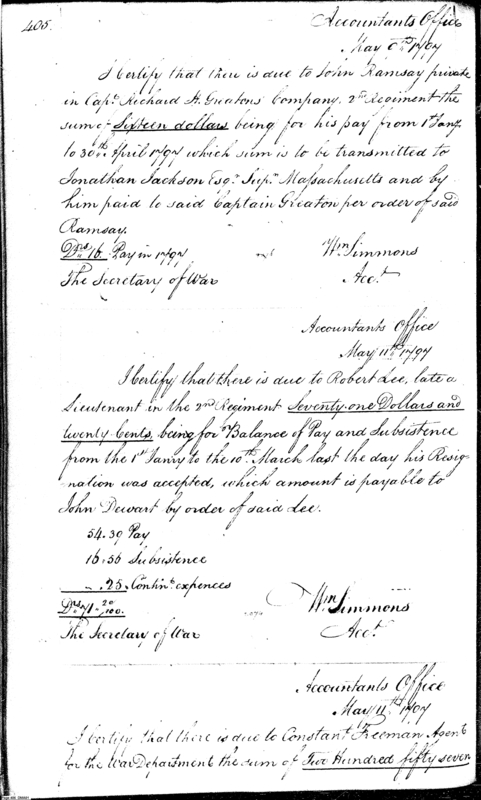 405.
Accountants Office
May 9th 1797
I Certify that there is due to John Ramsay private
in Capt. Richard H. Greatons Company. 2nd Regiment the
sum of Sixteen dollars being for his pay from 1st Jany.
to 30th April 1797 which sum is to be transmitted to
Jonathan Jackson Esqr. Supr. Massachusetts and by
him paid to said Captain Greaton per order of said
Ramsay.
Drs. 16. Pay in 1797
Wm Simmons
The Secretary of War
Acct.
Accountants Office
May 11th 1797
I Certify that there is due to Robert Lee, late a
Lieutenant in the 2nd Regiment Seventy-one Dollars and
twenty Cents, being for Balance of Pay and Subsistence
from the 1st Janry to the 10th March last the day his Resig-
nation was accepted, which amount is payable to
John Dewart by order of said Lee.
54.39 Pay
16.56 Subsistence
.25 Contint. expences
Drs. 71 20/100.
Wm Simmons
The Secretary of War
Acct.
Accountants Office
May 11th 1797
I Certify that there is due to Constant Freeman Agent
for the War Department the sum of Two Hundred fifty seven